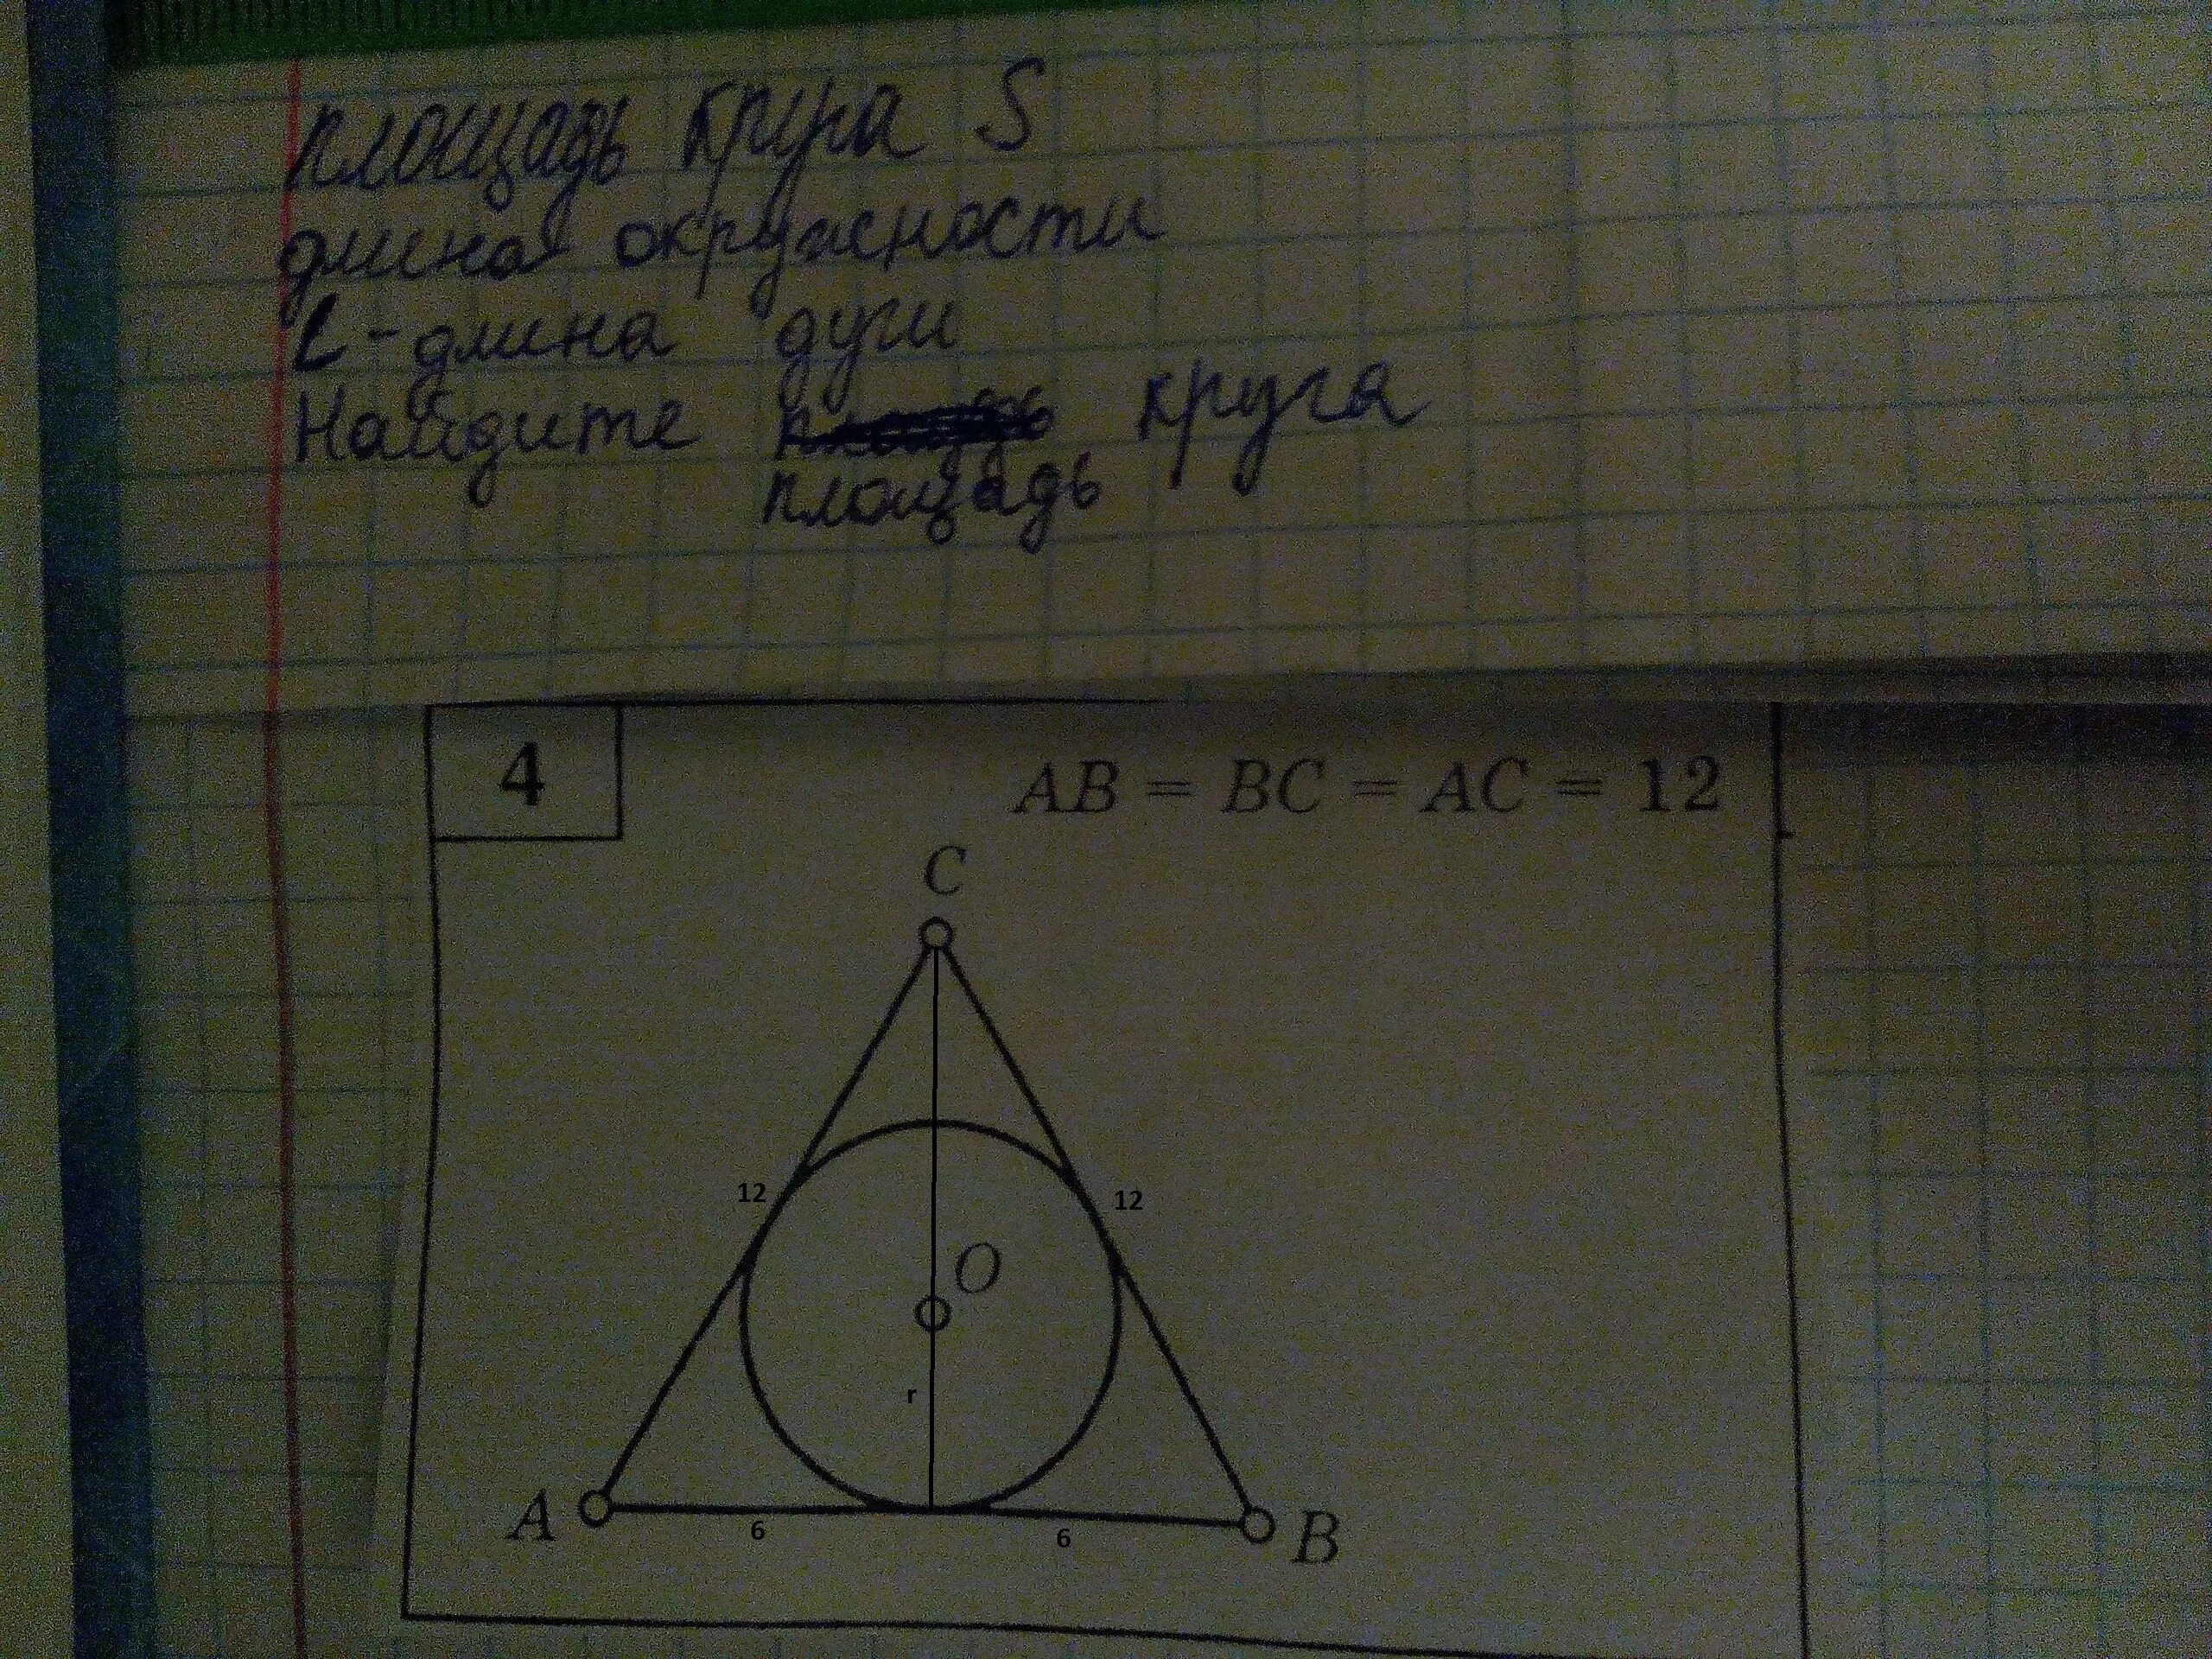 площадь круга S
длина окружности
L - длина дуги
Найдите круга
площадь
4
AB = BC = AC = 12
C
12
12
O
r
A
6
6
B